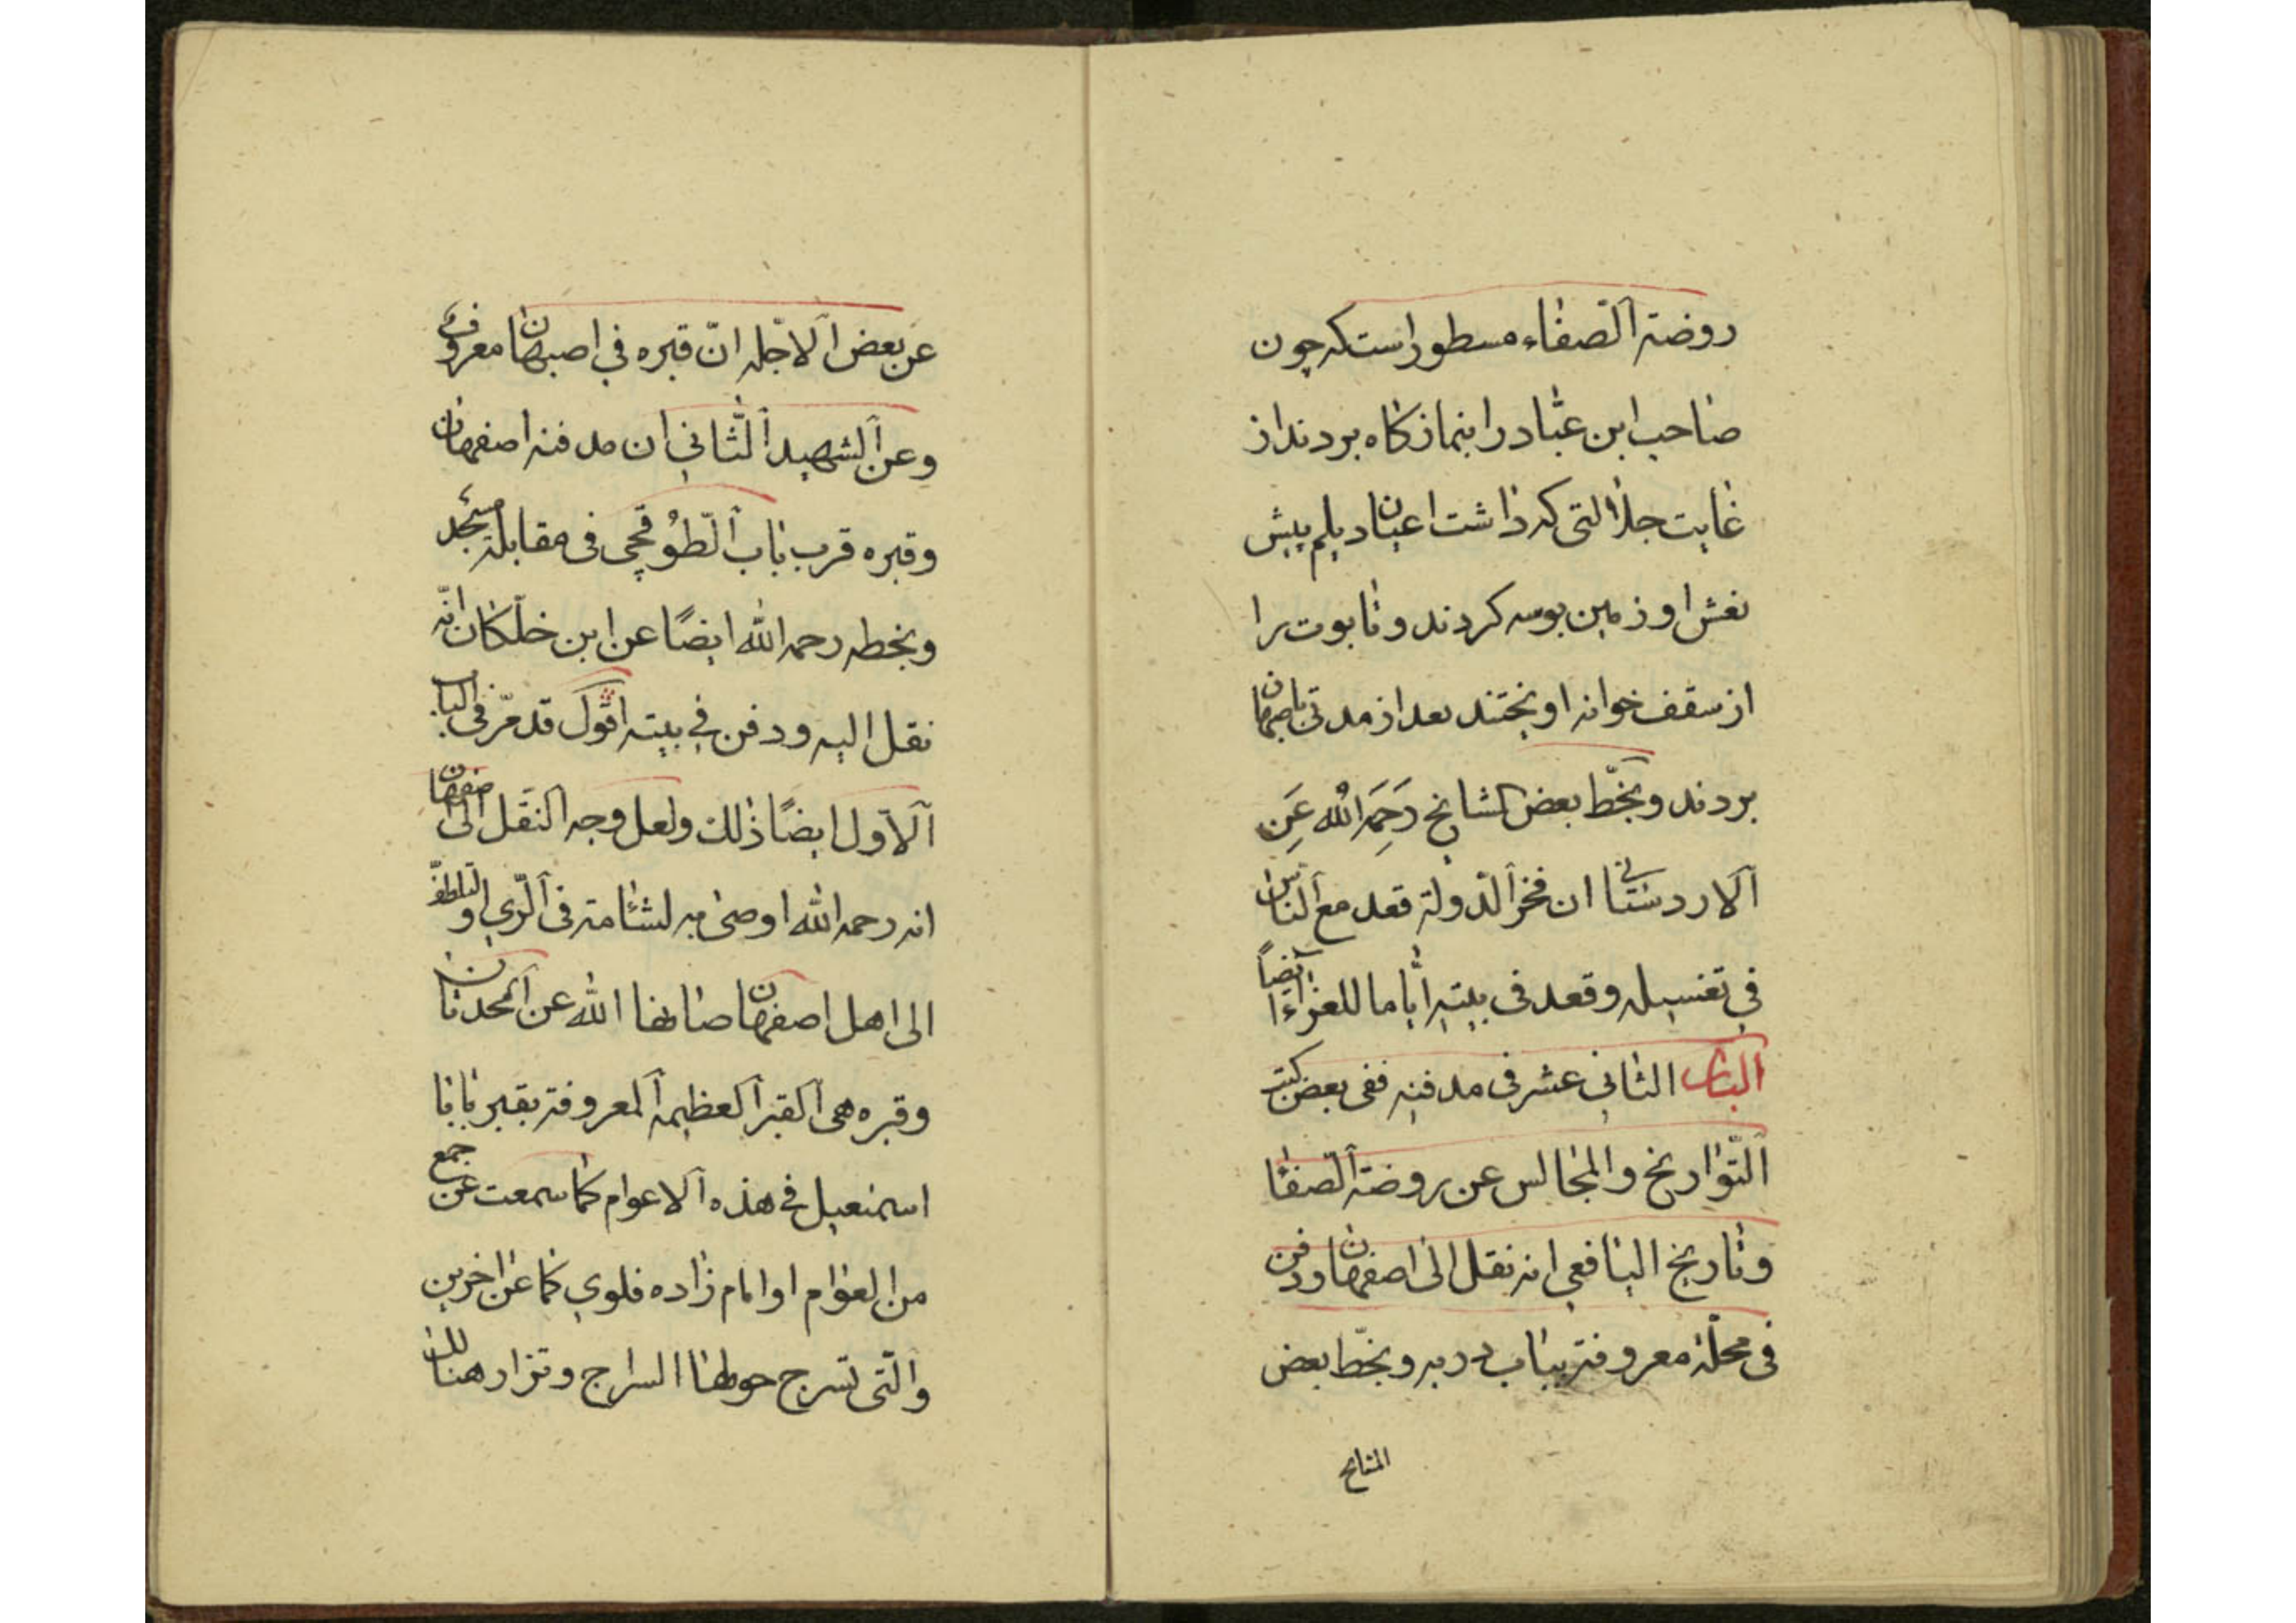 روضة الصفاء مسطور است که چون
صاحب ابن عباد را بنماز کاه بردند از
غایت جلالتی که داشت اعیان دیلم پیش
نعش او زمین بوسه کردند و تابوت را
از سقف خوانه اویختند بعد از مدتی باصبهان
بردند و بخط بعض المشایخ رحمه الله عن
الاردستانی ان فخر الدولة قعد مع الناس
فی تغسیله وقعد فی بیته ایاما للعزاء ایضا
الباب الثانی عشر فی مدفنه ففی بعض کتب
التواریخ والمجالس عن روضة الصفا
وتاریخ الیافعی انه نقل الی اصفهان ودفن
فی محلة معروفة بباب دربه وبخط بعض
المشایخ
عن بعض الاجله ان قبره فی اصبهان معروف
وعن الشهید الثانی ان مدفنه اصفهان
وقبره قرب باب الطوقچی فی مقابلة مسجد
وبخطه رحمه الله ایضا عن ابن خلکان انه
نقل الیه ودفن فی بیته اقول قد مر فی الباب
الاول ایضا ذلك ولعل وجه النقل الی اصفهان
انه رحمه الله اوصی به لشئامة فی الری او لتلطف
الی اهل اصفهان صانها الله عن الحدثان
وقبره هی القبر العظیمه المعروفة بقبر بابا
اسمعیل فی هذه الاعوام کما سمعت عن جمع
من العوام او امام زاده فلوی کما عن اخرین
والتی تسرج حولها السراج وتزار هنالك